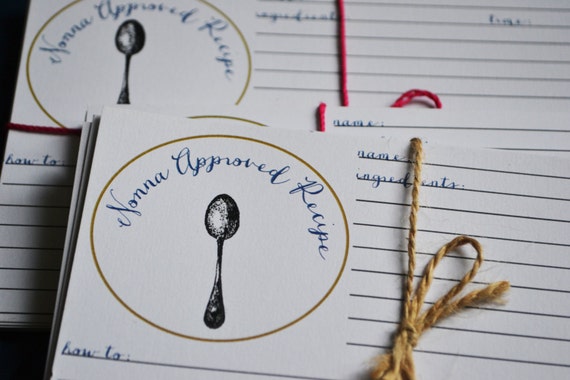 Nonna Approved Recipe
ingredients:
time:
how to:
name:
Nonna Approved Recipe
name:
ingredients:
how to: